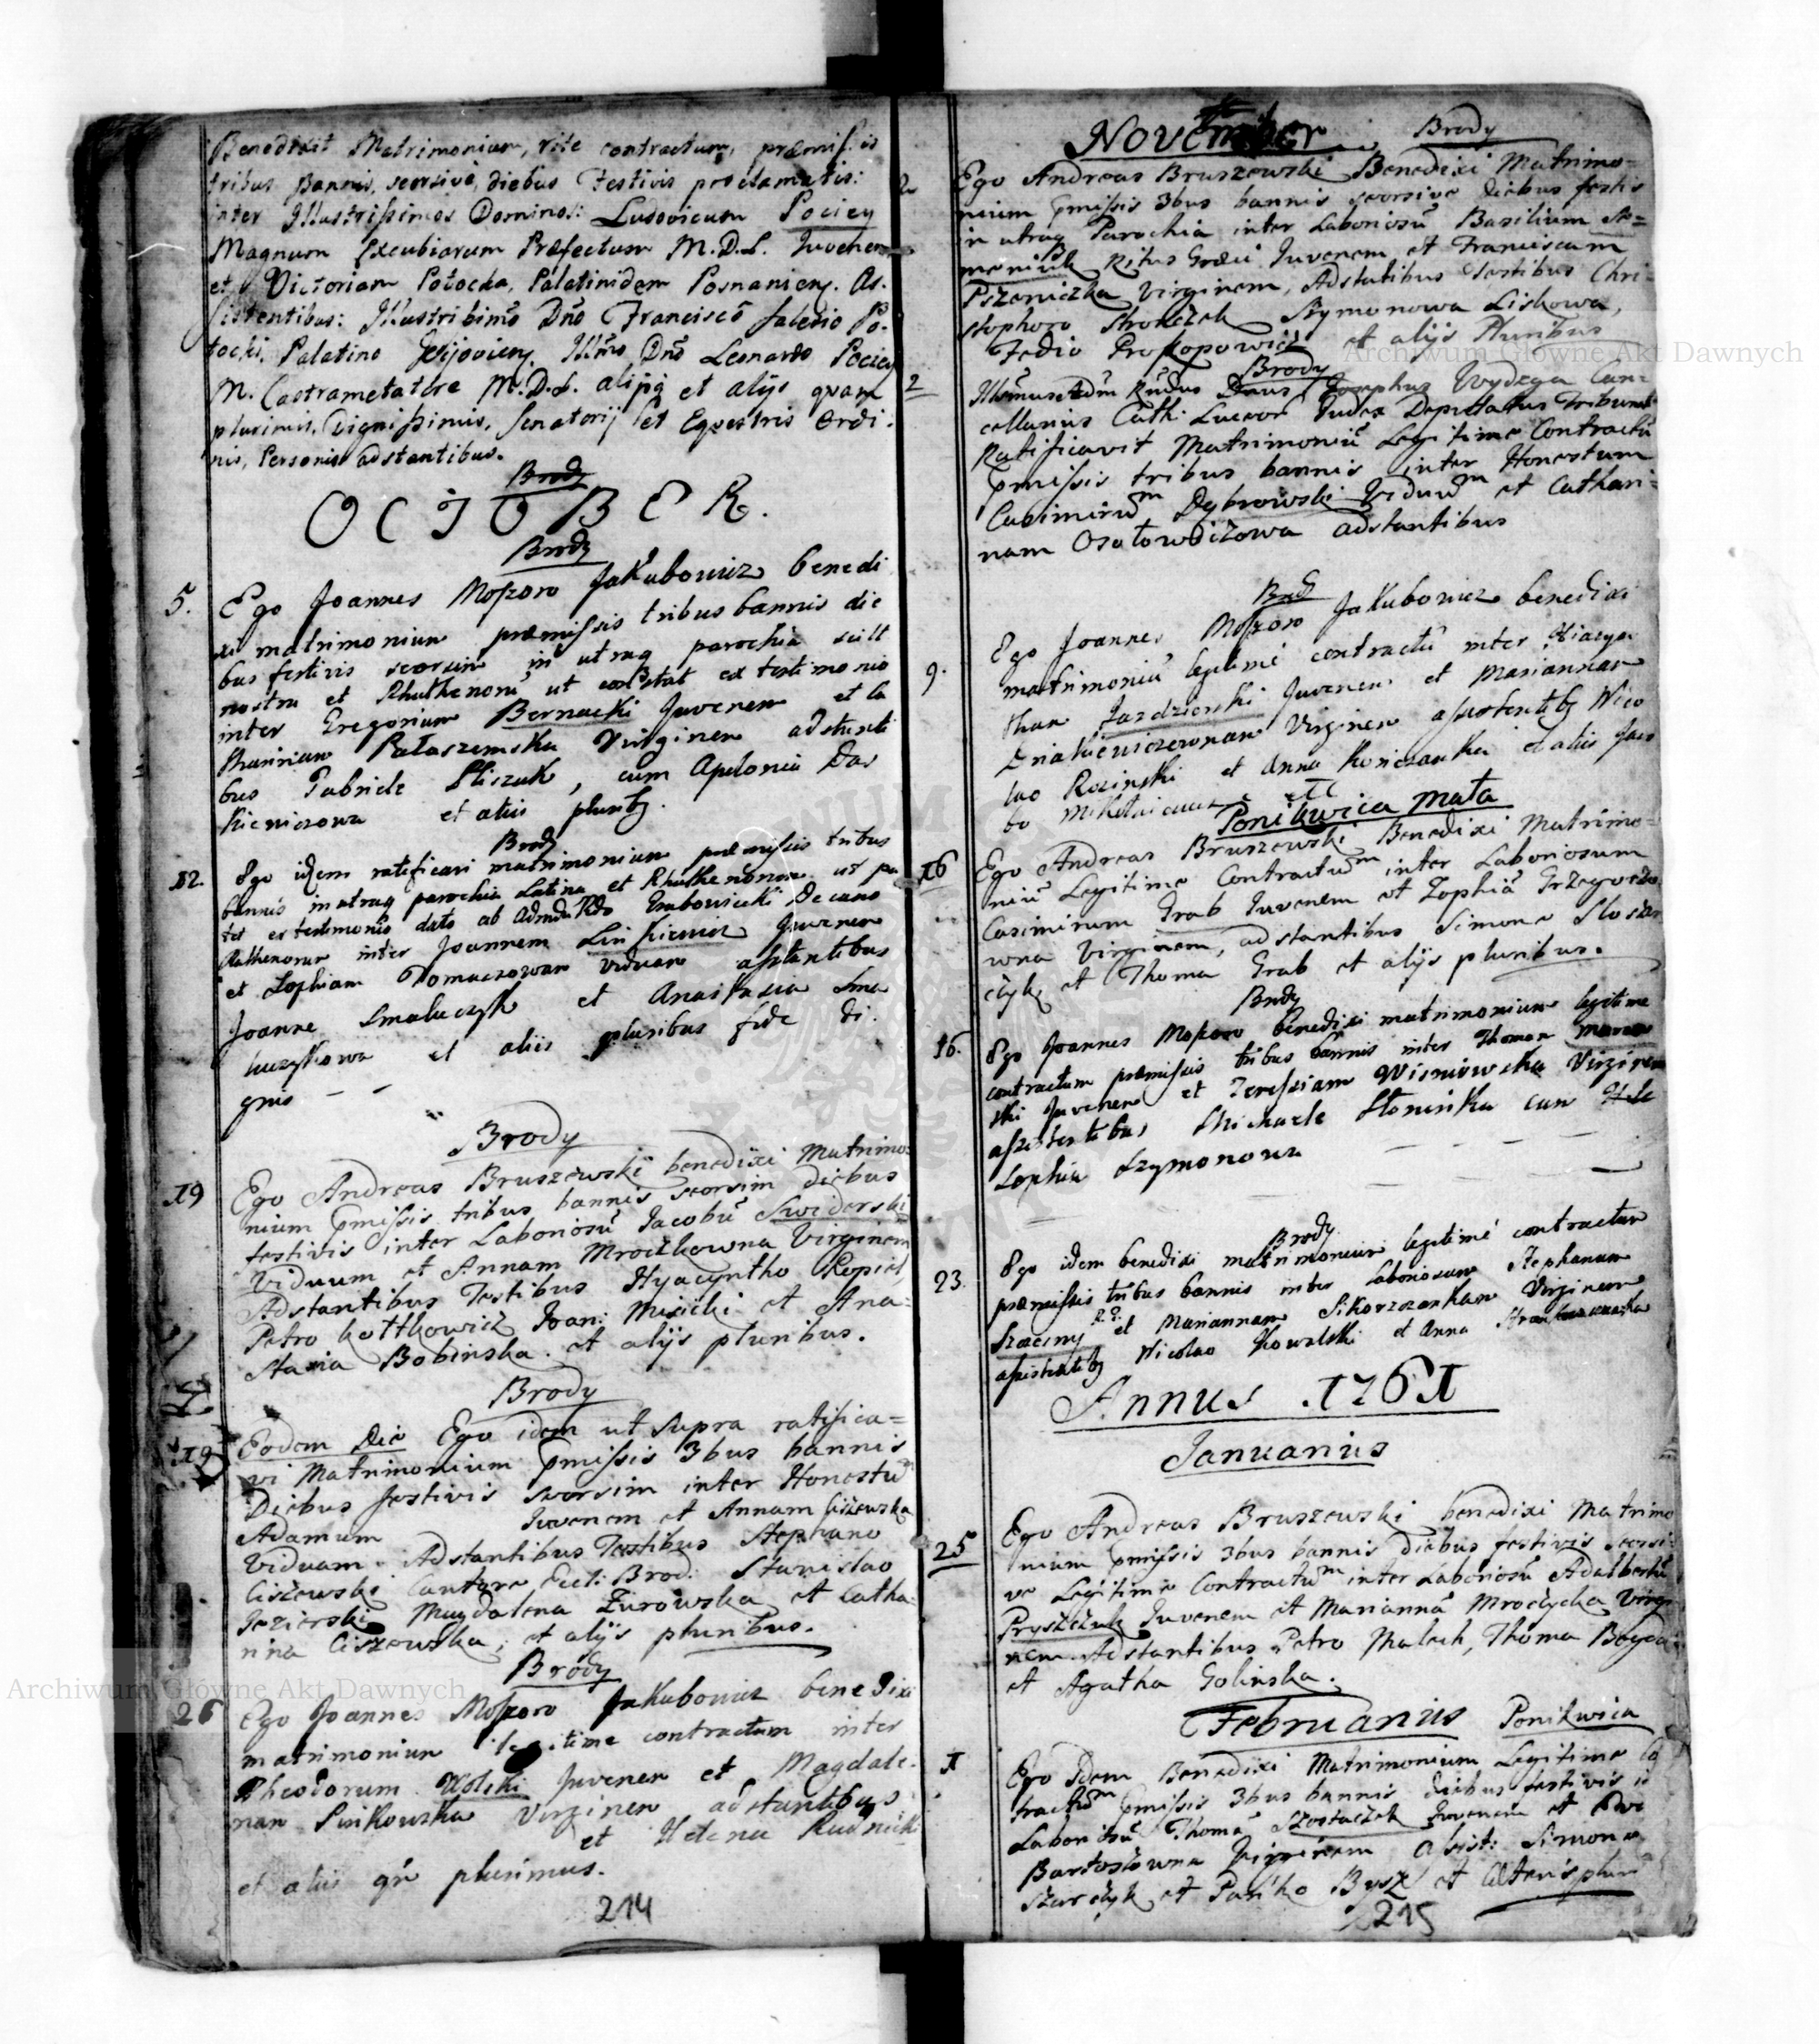 Benedixit Matrimonium, rite contractum, præmissis
tribus Bannis, seorsivè, diebus Festivis proclamatis:
inter Illustrissimos Dominos: Ludovicum Pociey
Magnum Excubiarum Præfectum M.D.L. Juvenem
et Victoriam Potocka, Palatinidem Posnanien. As.
sistentibus: Illustrissimo Dño Francisco Salesio Po-
tocki, Palatino Kijovien, Illmo Dño Leonardo Pociey
M. Castrametatore M.D.L. alijsq et alijs quam
plurimis, Dignissimis, Senatorij et Equestris Ordi.
nis, Personis adstantibus.
Brody
OCTOBER.
Brody
5. Ego Joannes Moszoro Jakubowicz benedi
xi matrimonium præmissis tribus bannis die
bus festivis seorsim in utraq parochia scilt
nostra et Ruthenorū ut constat ex testimonio
inter Gregorium Bernacki Juvenem et Ca
tharinam Pałaszewska Virginem adstanti
bus Gabriele Sliszuk, cum Apolonia Das
kiewiczowa et aliis plurib.
Brody
12. Ego idem ratificavi matrimonium præmissis tribus
bannis in utraq parochia Latina et Ruthenorum ut pa
tet ex testimonio dato ab Admdū Rdo Grabowiecki Decano
Ruthenorum inter Joannem Juvenem
et Zophiam Tomaczowan viduam astantibus
Joanne Smaluczyk et Anastasia Sma
luczykowa et aliis pluribus fide di.
gnis
Brody
19 Ego Andreas Bruszewski benedixi Matrimo-
nium pmissis tribus bannis seorsim diebus
festivis inter Laboriosū Jacobū Swiderski
Viduum et Annam Mroczkowna Virginem
Adstantibus Testibus Hyacyntho Kopiel,
Petro Kottkowicz Joan: Misicki et Ana-
stasia Bobinska. et alijs pluribus.
Brody
19 Eodem Die Ego idem ut supra ratifica-
vi Matrimonium pmissis 3bus bannis
Diebus festivis seorsim inter Honestū
Adamum Juvenem et Annam Ciszewska
Viduam. Adstantibus Testibus Stephano
Ciszewski Cantore Eccl: Brod: Stanislao
Jezierski Magdalena Zurowska et Catha-
rina Ciszewska, et alijs pluribus.
Brody
26 Ego Joannes Moszoro Jakubowicz benedixi
matrimonium legitime contractum inter
Theodorum Wolski Juvenem et Magdale.
nam Pinkowska Virginem adstantibus
et Helena Rudnicki
et aliis qm plurimis.
214
November Brody
2 Ego Andreas Bruszewski Benedixi Matrimo-
nium pmissis 3bus bannis seorsive diebus festis
in utraq Parochia inter Laboriosū Basilium Se-
meniuk Ritus Græci Juvenem et Franciscam
Pszeniczka Virginem, Adstatibus Testibus Chri-
stophoro Stroiczek Symonowa Liskowa,
Fedio Prokopowicz et alijs Pluribus
Brody
2 Illsmus Adm Rndus Dnus Josephus Wydzga Can-
cellarius Cath: Luceor Judex Deputatus Tribunal
Ratificavit Matrimoniū Legitime Contractū
pmissis tribus bannis inter Honestum
Casimirum Dębrowski Viduum et Cathari-
nam Osotowiczowa adstantibus
Brody
9. Ego Joannes Moszoro Jakubowicz benedixi
matrimoniū legitimé contractū inter Hiacyn
thum Jazdzienski Juvenem et Mariannam
Dziakiewiczownam Virginem assistentib Nico
lao Rozinski et Anna Konczanka et aliis Jaco
bo etc
Ponikwica mała
16 Ego Andreas Bruszewski Benedixi Matrimo-
niū Legitime Contractum inter Laboriosum
Casimirum Grab Juvenem et Zophiā Grzegorzo
wna Virginem, adstantibus Simone Slosar
czyk et Thoma Grab et alijs pluribus.
Brody
16. Ego Joannes Moszoro benedixi matrimonium legitime
contractum præmissis tribus bannis inter Thomam
ski Juvenem et Teressiam Wisniowska Virginem
assistentibus Michaele Słonińka cum
Zophia Szymonowa
Brody
23. Ego idem benedixi matrimonium legitimé contractum
præmissis tribus bannis inter Laboriosum Stephanum
Szaeiny et Mariannam Sikorszankam Virginem
assistentib Nicolao Kowalski et Anna
Annus .1761
Januarius
25 Ego Andreas Bruszewski benedixi Matrimo
nium pmissis 3bus bannis diebus festivis seorsi-
ve Legitime Contractum inter Laboriosū Adalbertū
Pryszczuk Juvenem et Mariannā Mroczycka Virgi
nem. Adstantibus Petro Malech, Thoma Bogda
et Agatha Golinska.
Februarius Ponikwica
1 Ego Idem Benedixi Matrimonium Legitime Co
tractum pmissis 3bus bannis diebus festivis
Laboriosū Thomā Szostaczek Juvenem et
Bartosowna Virginem Assist: Simone
Szarczyk et Pańko Bysz et Cæteris plur
215
Archiwum Główne Akt Dawnych
Archiwum Główne Akt Dawnych